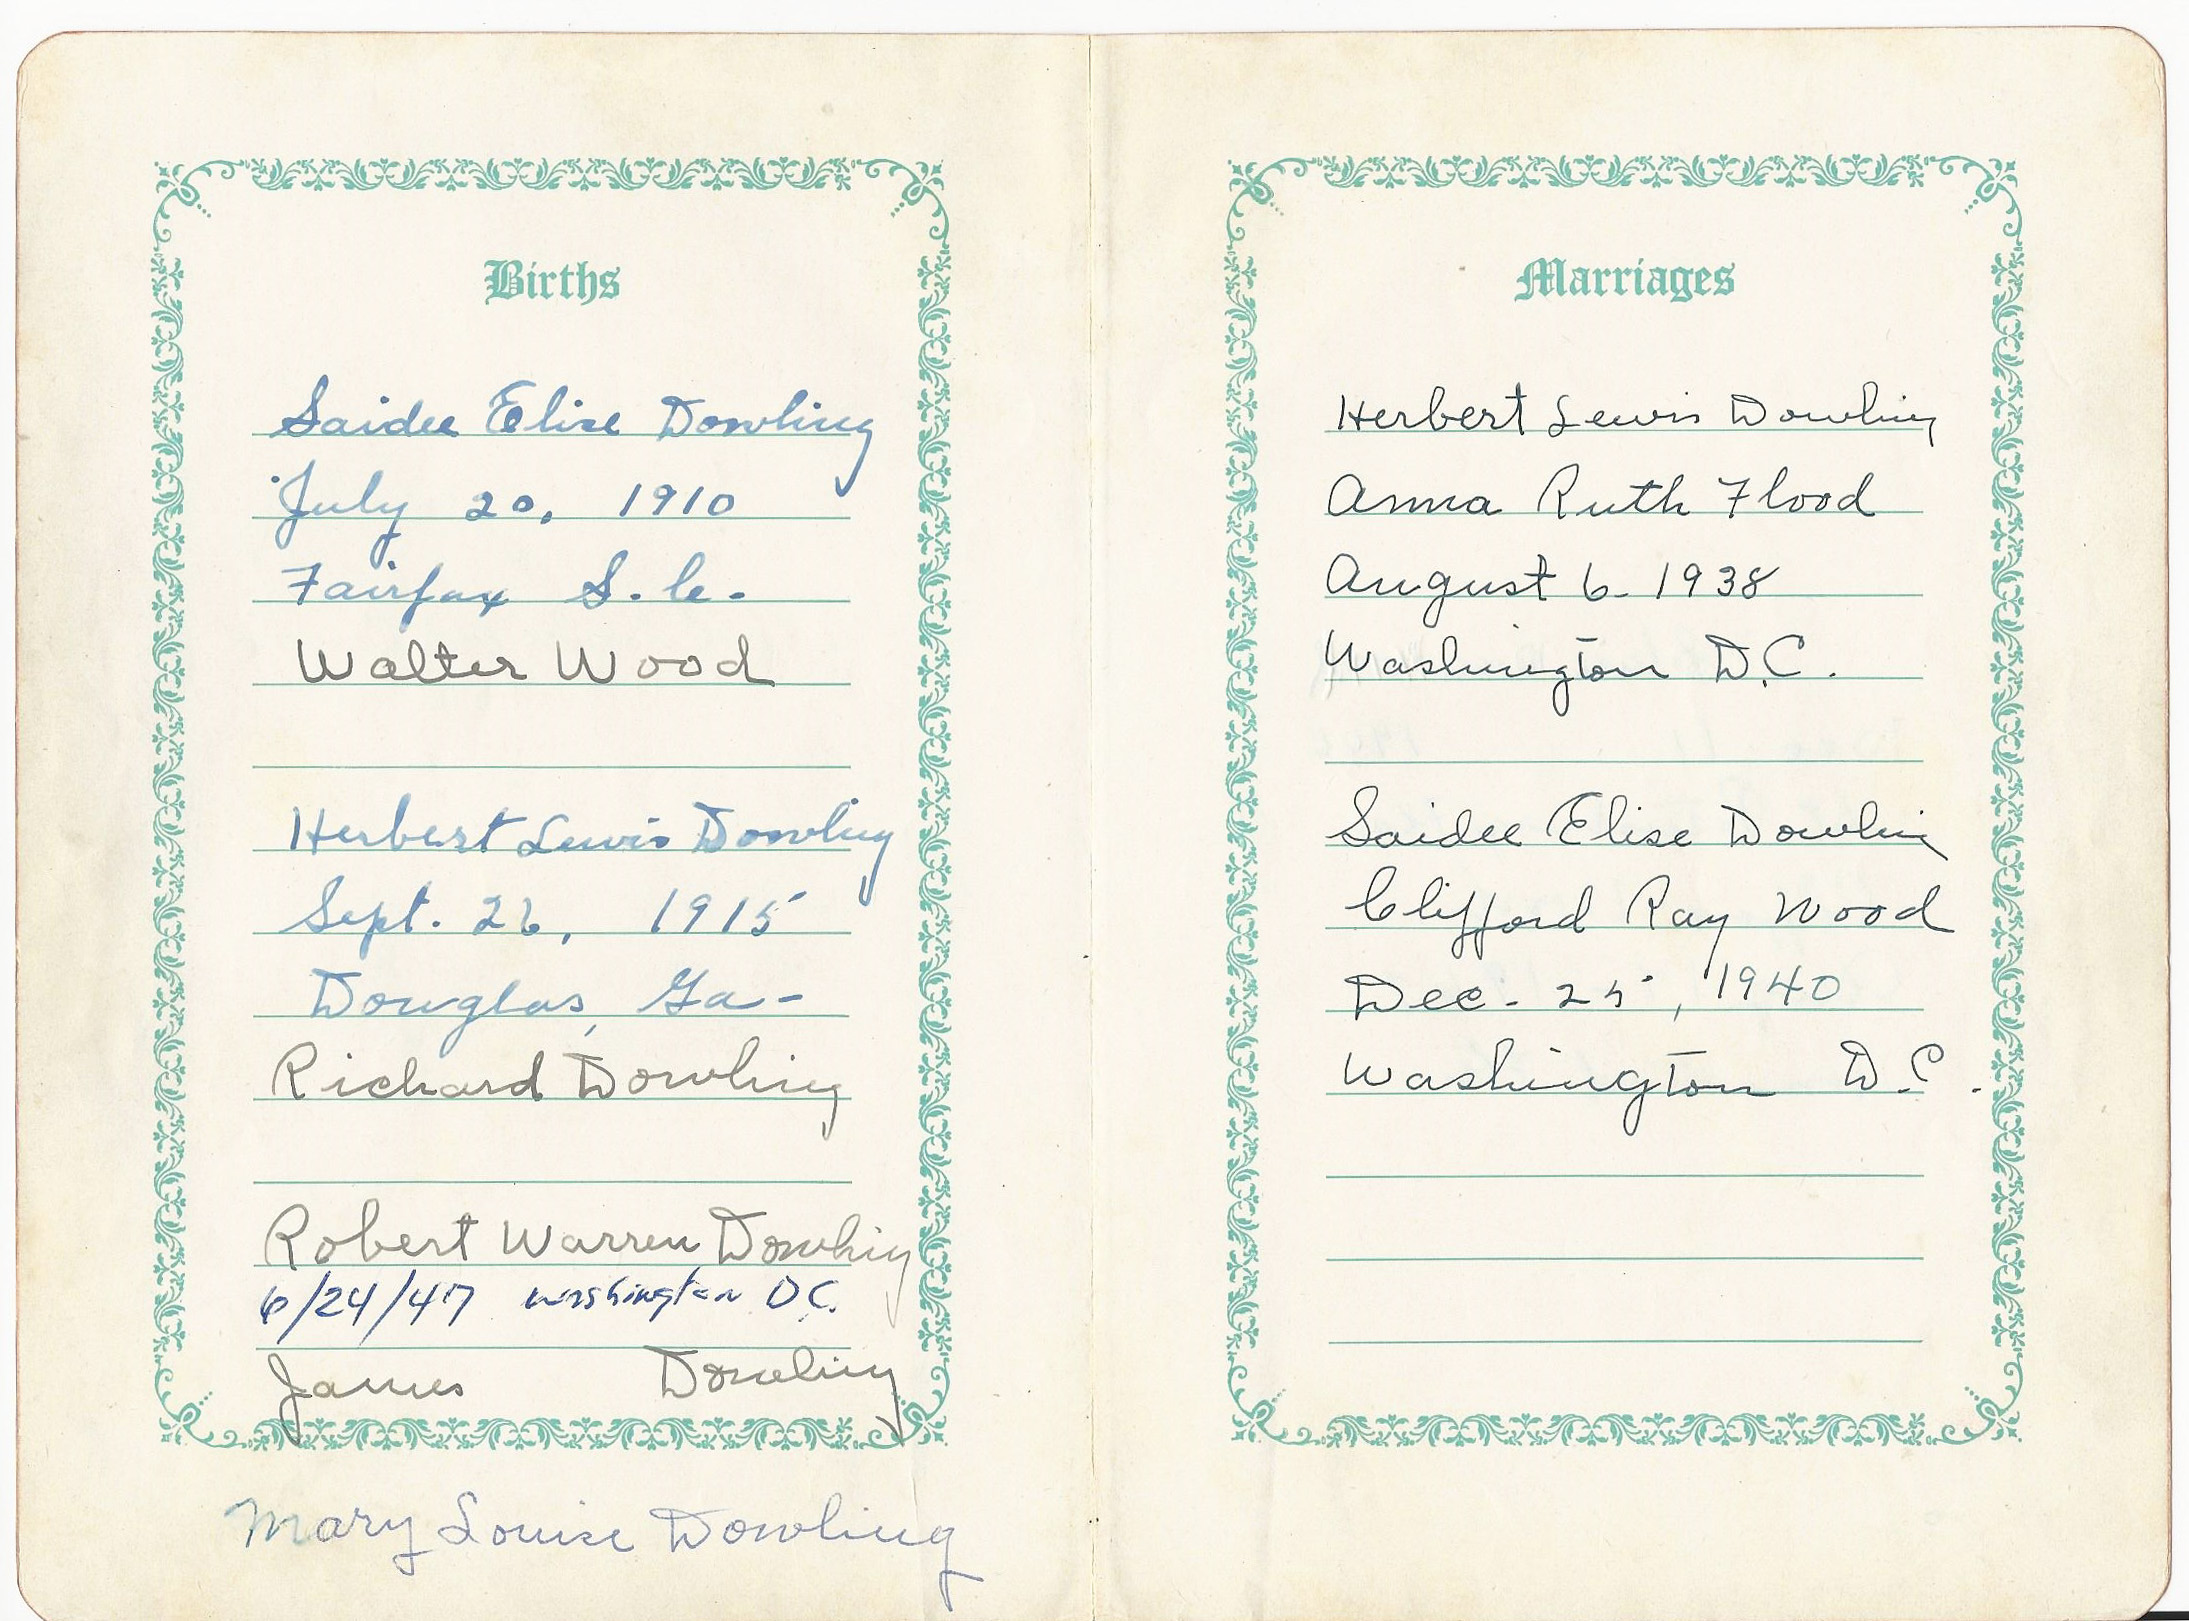 Births
Saidee Elise Dowling
July 20, 1910
Fairfax S.C.
Walter Wood
Herbert Lewis Dowling
Sept. 26, 1915
Douglas, Ga-
Richard Dowling
Robert Warren Dowling
6/24/47 Washington DC.
James Dowling
Mary Louise Dowling
Marriages
Herbert Lewis Dowling
Anna Ruth Flood
August 6- 1938
Washington D.C.
Saidee Elise Dowling
Clifford Ray Wood
Dec. 25, 1940
Washington D.C.